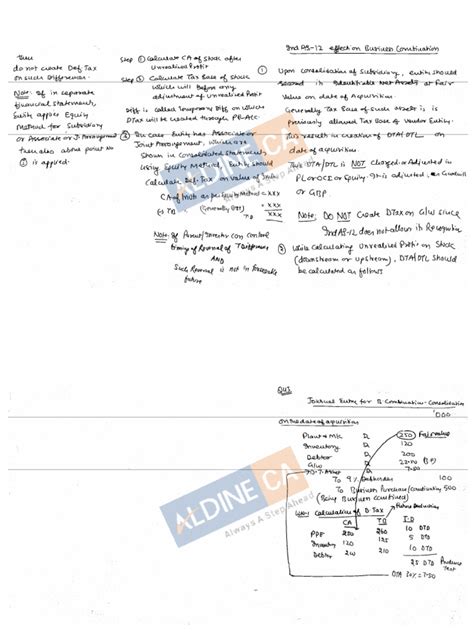 then
do not create Def. Tax
on such Differences.
Note: If in separate
financial statement,
Entity apply Equity
Method for Subsidiary
or Associate or J. Arrangement
then also above point No
① is applied.
Step ① Calculate CA of stock after
unrealised Profit
Step ② Calculate Tax Base of Stock
which will before any
adjustment of unrealised Profit
Diff is called Temporary Diff on which
DTA will be created through P&L Acc
③ In Case Entity has Associate or
Joint Arrangement, which are
Shown in Consolidated Statements
using Equity Method, Entity should
Calculate Def. Tax on value of
CA of as per Equity Method = XXX
(-) TB (Generally Cost) = XXX
T.D XXX
Note: If Parent/Investor can control
timing of Reversal of T.Difference
AND
Such Reversal is not in foreseeable
future
Ind AS-12 effect on Business Combination
① Upon Consolidation of Subsidiary, Entity should
record its identifiable Net Assets at Fair
Value on date of Acquisition.
Generally Tax Base of such Assets is
previously allowed Tax Base of Vendor Entity.
This result in creation of DTA/DTL on
date of acquisition.
This DTA/DTL is NOT Charged or Adjusted in
PL or OCI or Equity. It is adjusted in Goodwill
or GBP.
Note: DO NOT Create DTax on G/w since
Ind AS-12 does not allow its Recognition
② While Calculating Unrealised Profit on Stock
(downstream or upstream), DTA/DTL should
be calculated as follows
Journal Entry for B Combination - Consolidation
'000
On the date of acquisition
Plant & M/c D 250 Fair value
Inventory D 120
Debtor D 200
G/w D (B/F)
D.T. Asset D
To 9% Debentures 100
To Business Purchase/Consideration 500
(Being Business Combined)
WN-1 Calculation of D. Tax
CA TB T.D
PPE 250 260 10 DTA
Inventory 120 125 5 DTA
Debtor 200 210 10 DTA
25 DTA
DTA 30% = 7.50
ALDINE CA
Always A Step Ahead